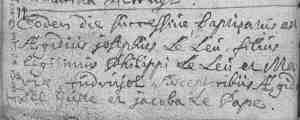 Eodem die successive baptisatus est
Ægidius josephus Le Leu, filius
Legitimus Philippi Le Leu et Ma
susceptoribus Ægid
et jacoba Le Pape.